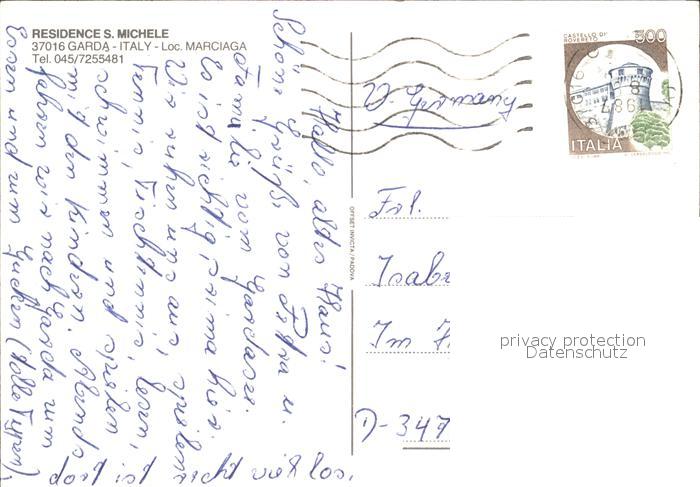 RESIDENCE S. MICHELE
37016 GARDA - ITALY - Loc. MARCIAGA
Tel. 045/7255481
Hallo, altes Haus!
Schöne Grüße von Petra u.
Familie vom Gardasee.
Es ist richtig prima hier.
Wir ruhen uns aus, spielen
Tennis, Tischtennis, lesen,
schwimmen und spielen
mit den Kindern. Abends
fahren wir nach Garda zum
Essen und zum Gucken (tolle Typen),
dort ist echt viel los.
CASTELLO DI
ROVERETO
500
ITALIA
OFFSET INVICTA / PADOVA
Frl.
Isab
Im
D-347
privacy protection
Datenschutz